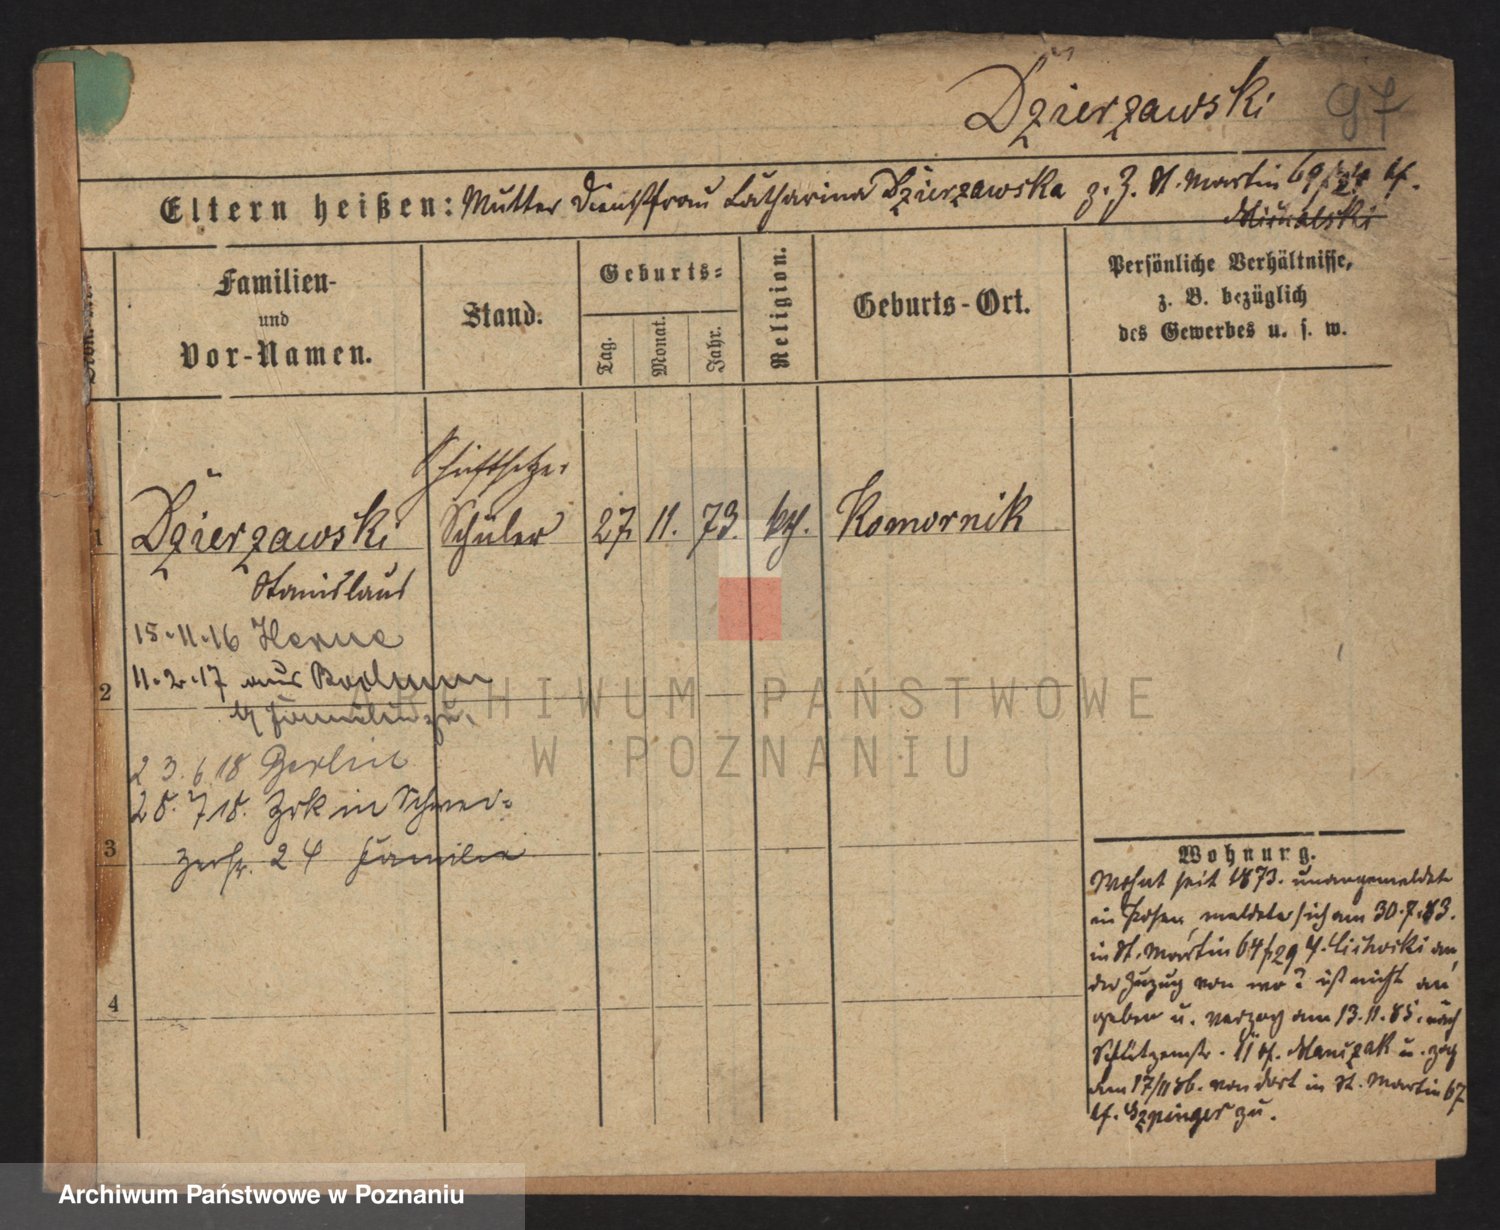 Dzierzawski 97
Eltern heißen: Mutter Dienstfrau Catharina Dzierzawska z. Z. St. Martin 69/24 bf.
Familien-
und
Vor-Namen.
Stand.
Geburts-
Tag.
Monat.
Jahr.
Religion.
Geburts-Ort.
Persönliche Verhältnisse,
z. B. bezüglich
des Gewerbes u. s. w.
Schriftsetzer
1 Dzierzawski Schüler 27. 11. 73. kth. Komornik
Stanislaus
15.11.16 Herne
11.2.17 aus Bochum
2
Familie zu.
23.6.18 Berlin
28.7.18. Zrk in Schwei-
3 zerstr. 24 Familie
4
Wohnung.
Wohnt seit 1873. unangemeldet
in Posen, meldete sich am 30.7.83.
in St. Martin 64/29 an,
der Zuzug von wo? ist nicht an
geben u. verzog am 13.11.85. nach
Schützenstr. 11 bf. u. zog
am 17/11 86. von dort in St. Martin 67
bf. zu.
ARCHIWUM PAŃSTWOWE
W POZNANIU
Archiwum Państwowe w Poznaniu